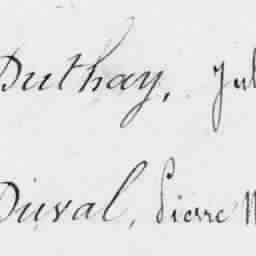 Duthay, Jul
Duval, Pierre M